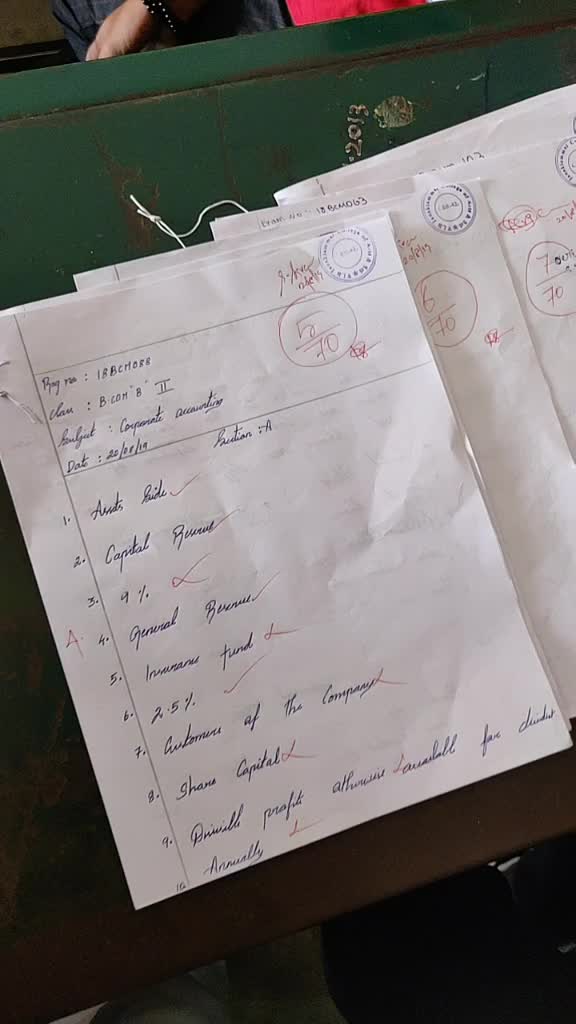 2013
Exam No :- 18BCM063
5/70
6/70
7/70
Reg no : 18BCM088
Class : B.COM "B" II
Subject : Corporate accounting
Date : 20/08/19
Section :- A
1. Assets side
2. Capital Reserve
3. 9%
A. 4. General Reserve
5. Insurance fund
6. 2.5%
7. Customers of the Company
8. Share Capital
9. Divisible profits otherwise available for dividend
10 Annually